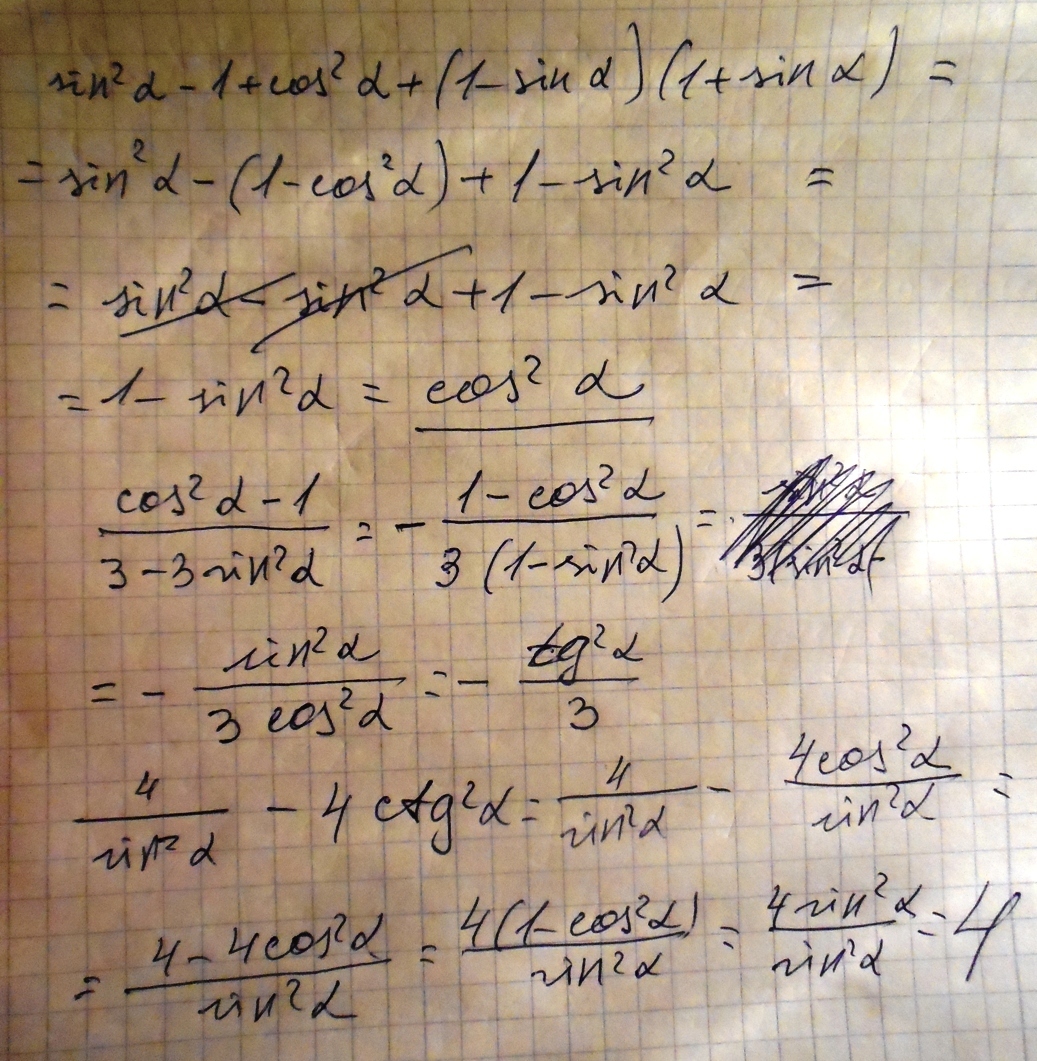 sin²α - 1 + cos²α + (1 - sin α)(1 + sin α) =
= sin²α - (1 - cos²α) + 1 - sin²α =
= sin²α - sin²α + 1 - sin²α =
= 1 - sin²α = cos²α
(cos²α - 1)/(3 - 3sin²α) = - (1 - cos²α)/(3(1 - sin²α)) =
= - sin²α/(3cos²α) = - tg²α/3
4/sin²α - 4ctg²α = 4/sin²α - 4cos²α/sin²α =
= (4 - 4cos²α)/sin²α = 4(1 - cos²α)/sin²α = 4sin²α/sin²α = 4